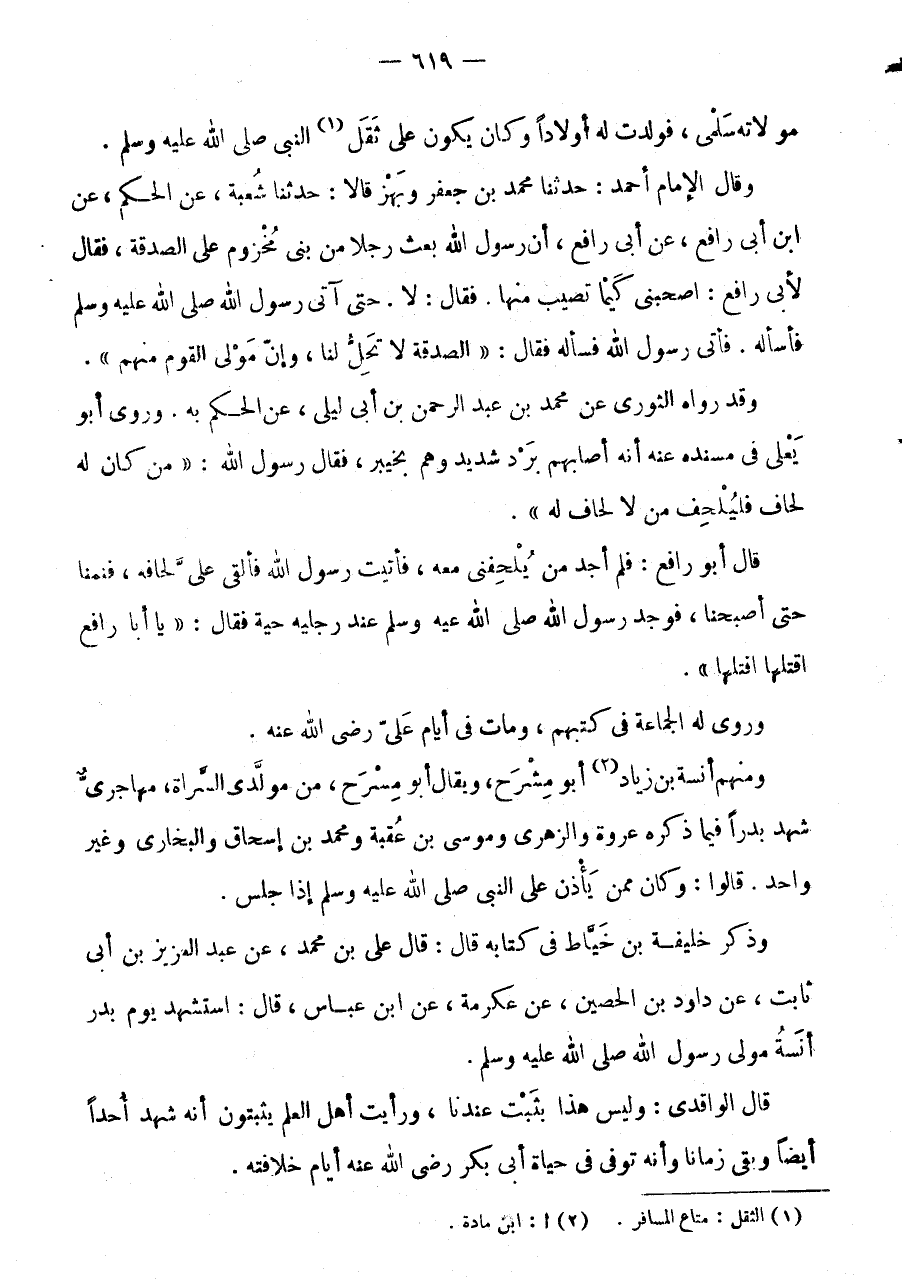 — ٦١٩ —
مولاته سَلْمى ، فولدت له أولاداً وكان يكون على ثَقَل (١) النبى صلى الله عليه وسلم .
وقال الإمام أحمد : حدثنا محمد بن جعفر وبَهْز قالا : حدثنا شُعبة ، عن الحكم ، عن
ابن أبى رافع ، عن أبى رافع ، أن رسول الله بعث رجلا من بنى مَخْزوم على الصدقة ، فقال
لأبى رافع : اصحبنى كَيْما تصيب منها . فقال : لا . حتى آتى رسول الله صلى الله عليه وسلم
فأسأله . فأتى رسول الله فسأله فقال : « الصدقة لا تَحِلُّ لنا ، وإنّ مَوْلى القوم منهم » .
وقد رواه الثورى عن محمد بن عبد الرحمن بن أبى ليلى ، عن الحكم به . وروى أبو
يَعْلى فى مسنده عنه أنه أصابهم بَرَْد شديد وهم بخيبر ، فقال رسول الله : « من كان له
لحاف فليُلْحِف من لا لحاف له » .
قال أبو رافع : فلم أجد من يُلْحِفنى معه ، فأتيت رسول الله فألقى علىَّ لحافه ، فنمنا
حتى أصبحنا ، فوجد رسول الله صلى الله عيه وسلم عند رجليه حية فقال : « يا أبا رافع
اقتلها اقتلها » .
وروى له الجماعة فى كتبهم ، ومات فى أيام عَلىّ رضى الله عنه .
ومنهم أنسة بن زياد (٢) أبو مِشْرَح، ويقال أبو مِسْرَح ، من مولَّدى السَّراة، مهاجرىٌّ
شهد بدراً فيما ذكره عروة والزهرى وموسى بن عُقبة ومحمد بن إسحاق والبخارى وغير
واحد . قالوا : وكان ممن يَأْذن على النبى صلى الله عليه وسلم إذا جلس .
وذكر خليفة بن خَيَّاط فى كتابه قال : قال على بن محمد ، عن عبد العزيز بن أبى
ثابت ، عن داود بن الحصين ، عن عكرمة ، عن ابن عباس ، قال : استشهد يوم بدر
أنَسةُ مولى رسول الله صلى الله عليه وسلم .
قال الواقدى : وليس هذا بثَبْت عندنا ، ورأيت أهل العلم يثبتون أنه شهد أُحداً
أيضاً وبقى زمانا وأنه توفى فى حياة أبى بكر رضى الله عنه أيام خلافته .
(١) الثقل : متاع المسافر . (٢) ا : ابن مادة .